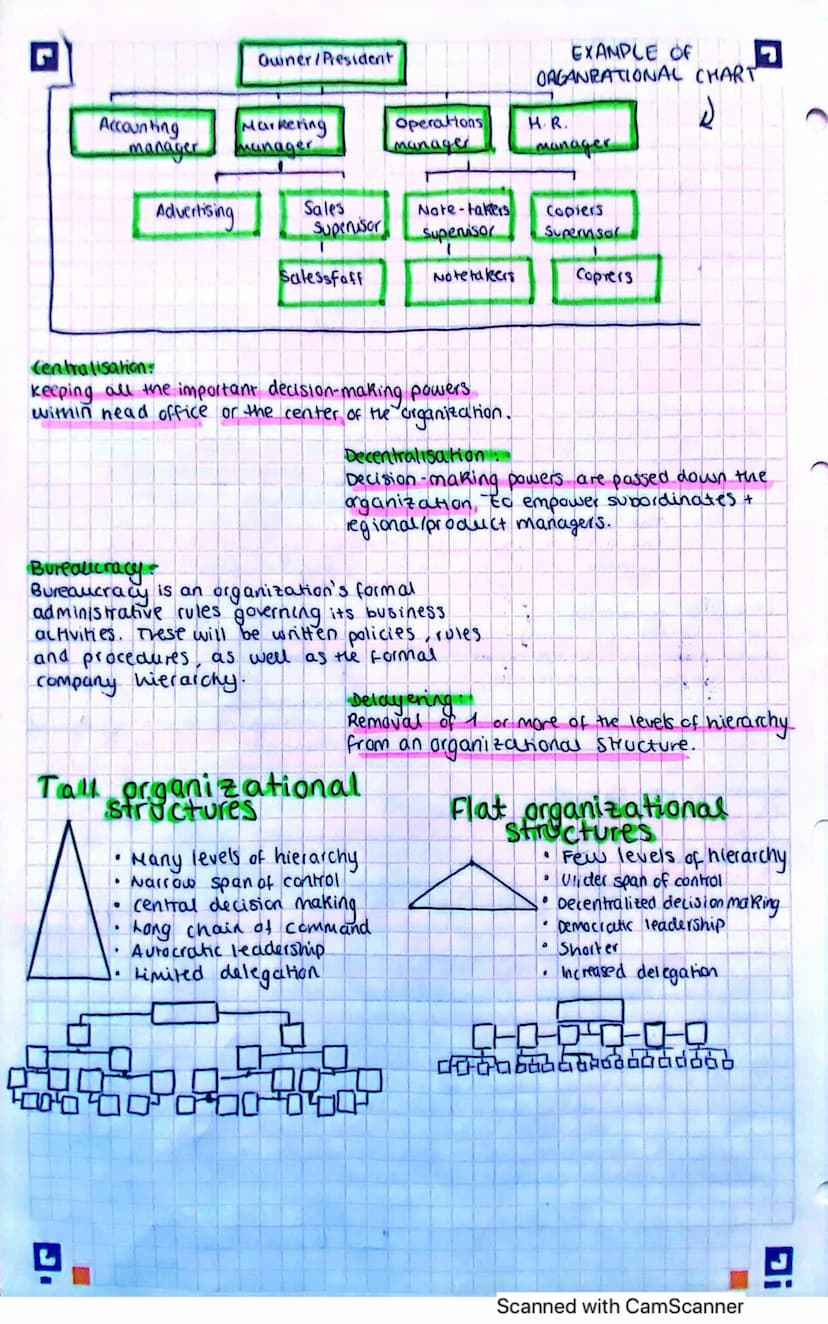 Owner/President
EXAMPLE OF
ORGANIZATIONAL CHART
Accounting
manager
Marketing
manager
Operations
manager
H.R.
manager
Advertising
Sales
Supervisor
Note-takers
supervisor
Copiers
Supervisor
Salesstaff
Notetakers
Copiers
Centralisation:
Keeping all the important decision-making powers
within head office or the center of the organization.
Decentralisation:
Decision-making powers are passed down the
organization, to empower subordinates +
regional/product managers.
Bureaucracy:
Bureaucracy is an organization's formal
administrative rules governing its business
activities. These will be written policies, rules
and procedures, as well as the formal
company hierarchy.
Delayering:
Removal of 1 or more of the levels of hierarchy
from an organizational structure.
Tall organizational
structures
• Many levels of hierarchy
• Narrow span of control
• Central decision making
• Long chain of command
• Autocratic leadership
• Limited delegation
Flat organizational
structures
• Few levels of hierarchy
• Wider span of control
• Decentralized decision making
• Democratic leadership
• Shorter
• Increased delegation
Scanned with CamScanner